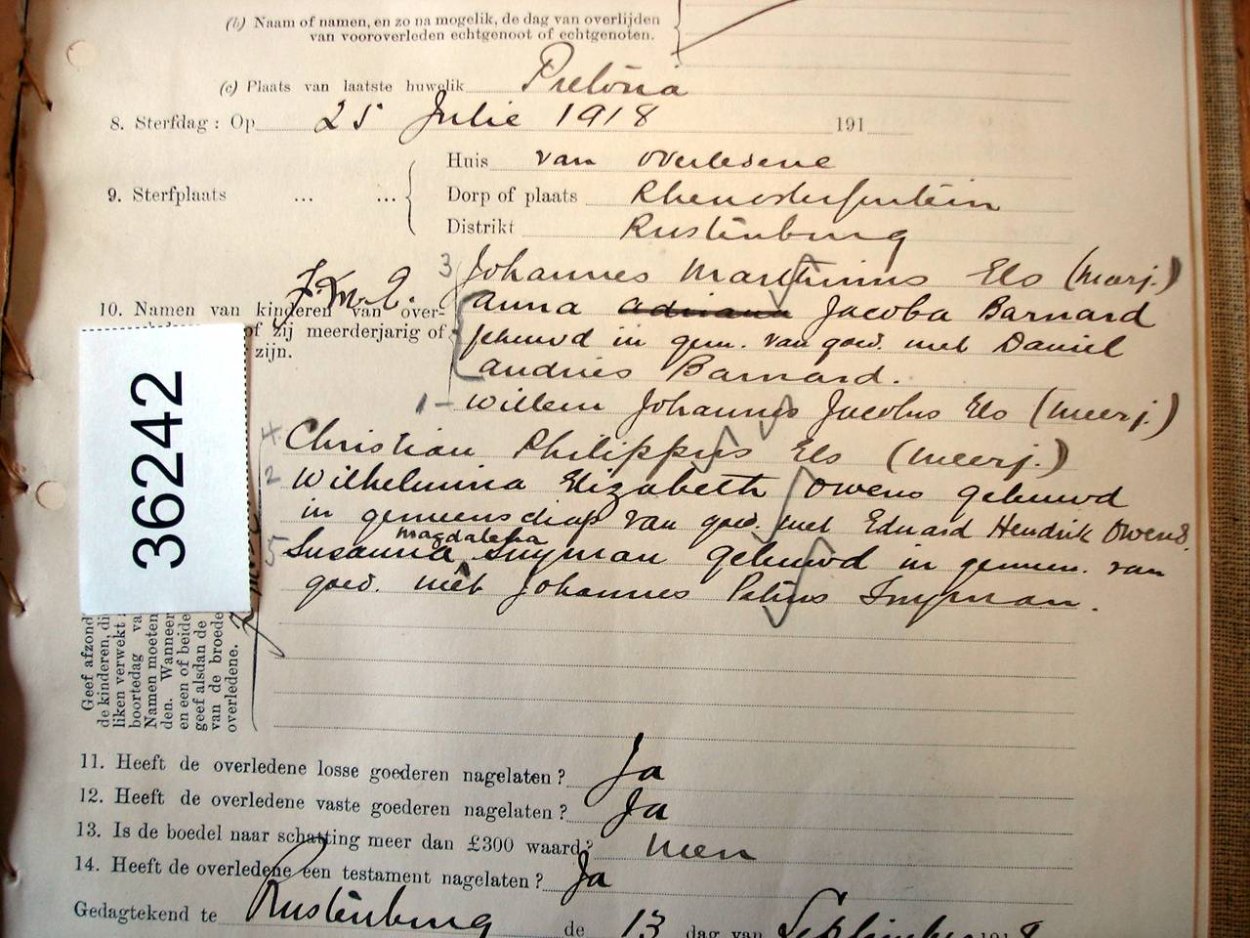 (b) Naam of namen, en zo na mogelik, de dag van overlijden
van vooroverleden echtgenoot of echtgenoten.
(c) Plaats van laatste huwelik Pretoria
8. Sterfdag: Op 25 Julie 1918 191
Huis van overledene
9. Sterfplaats ... ... Dorp of plaats Rhenosterfontein
Distrikt Rustenburg
3 Johannes Marthinus Els (meerj.)
J.M.E.
10. Namen van kinderen van over- Anna Adriana Jacoba Barnard
of zij meerderjarig of gehuwd in gem. van goed. met Daniel
zijn. Andries Barnard.
1- Willem Johannes Jacobus Els (meerj.)
4 Christian Philippus Els (meerj.)
2 Wilhelmina Elizabeth Owens gehuwd
in gemeenschap van goed. met Eduard Hendrik Owens.
magdalena
5 Susanna Snyman gehuwd in gemeen. van
goed. met Johannes Petrus Snyman.
36242
Geef afzond
de kinderen, di
liken verwekt
boortedag va
Namen moeten
den. Wanneer
en een of beide
geef alsdan de
van de broede
overledene.
11. Heeft de overledene losse goederen nagelaten? Ja
12. Heeft de overledene vaste goederen nagelaten? Ja
13. Is de boedel naar schatting meer dan £300 waard? neen
14. Heeft de overledene een testament nagelaten? Ja
Gedagtekend te Rustenburg de 13 dag van September 1918